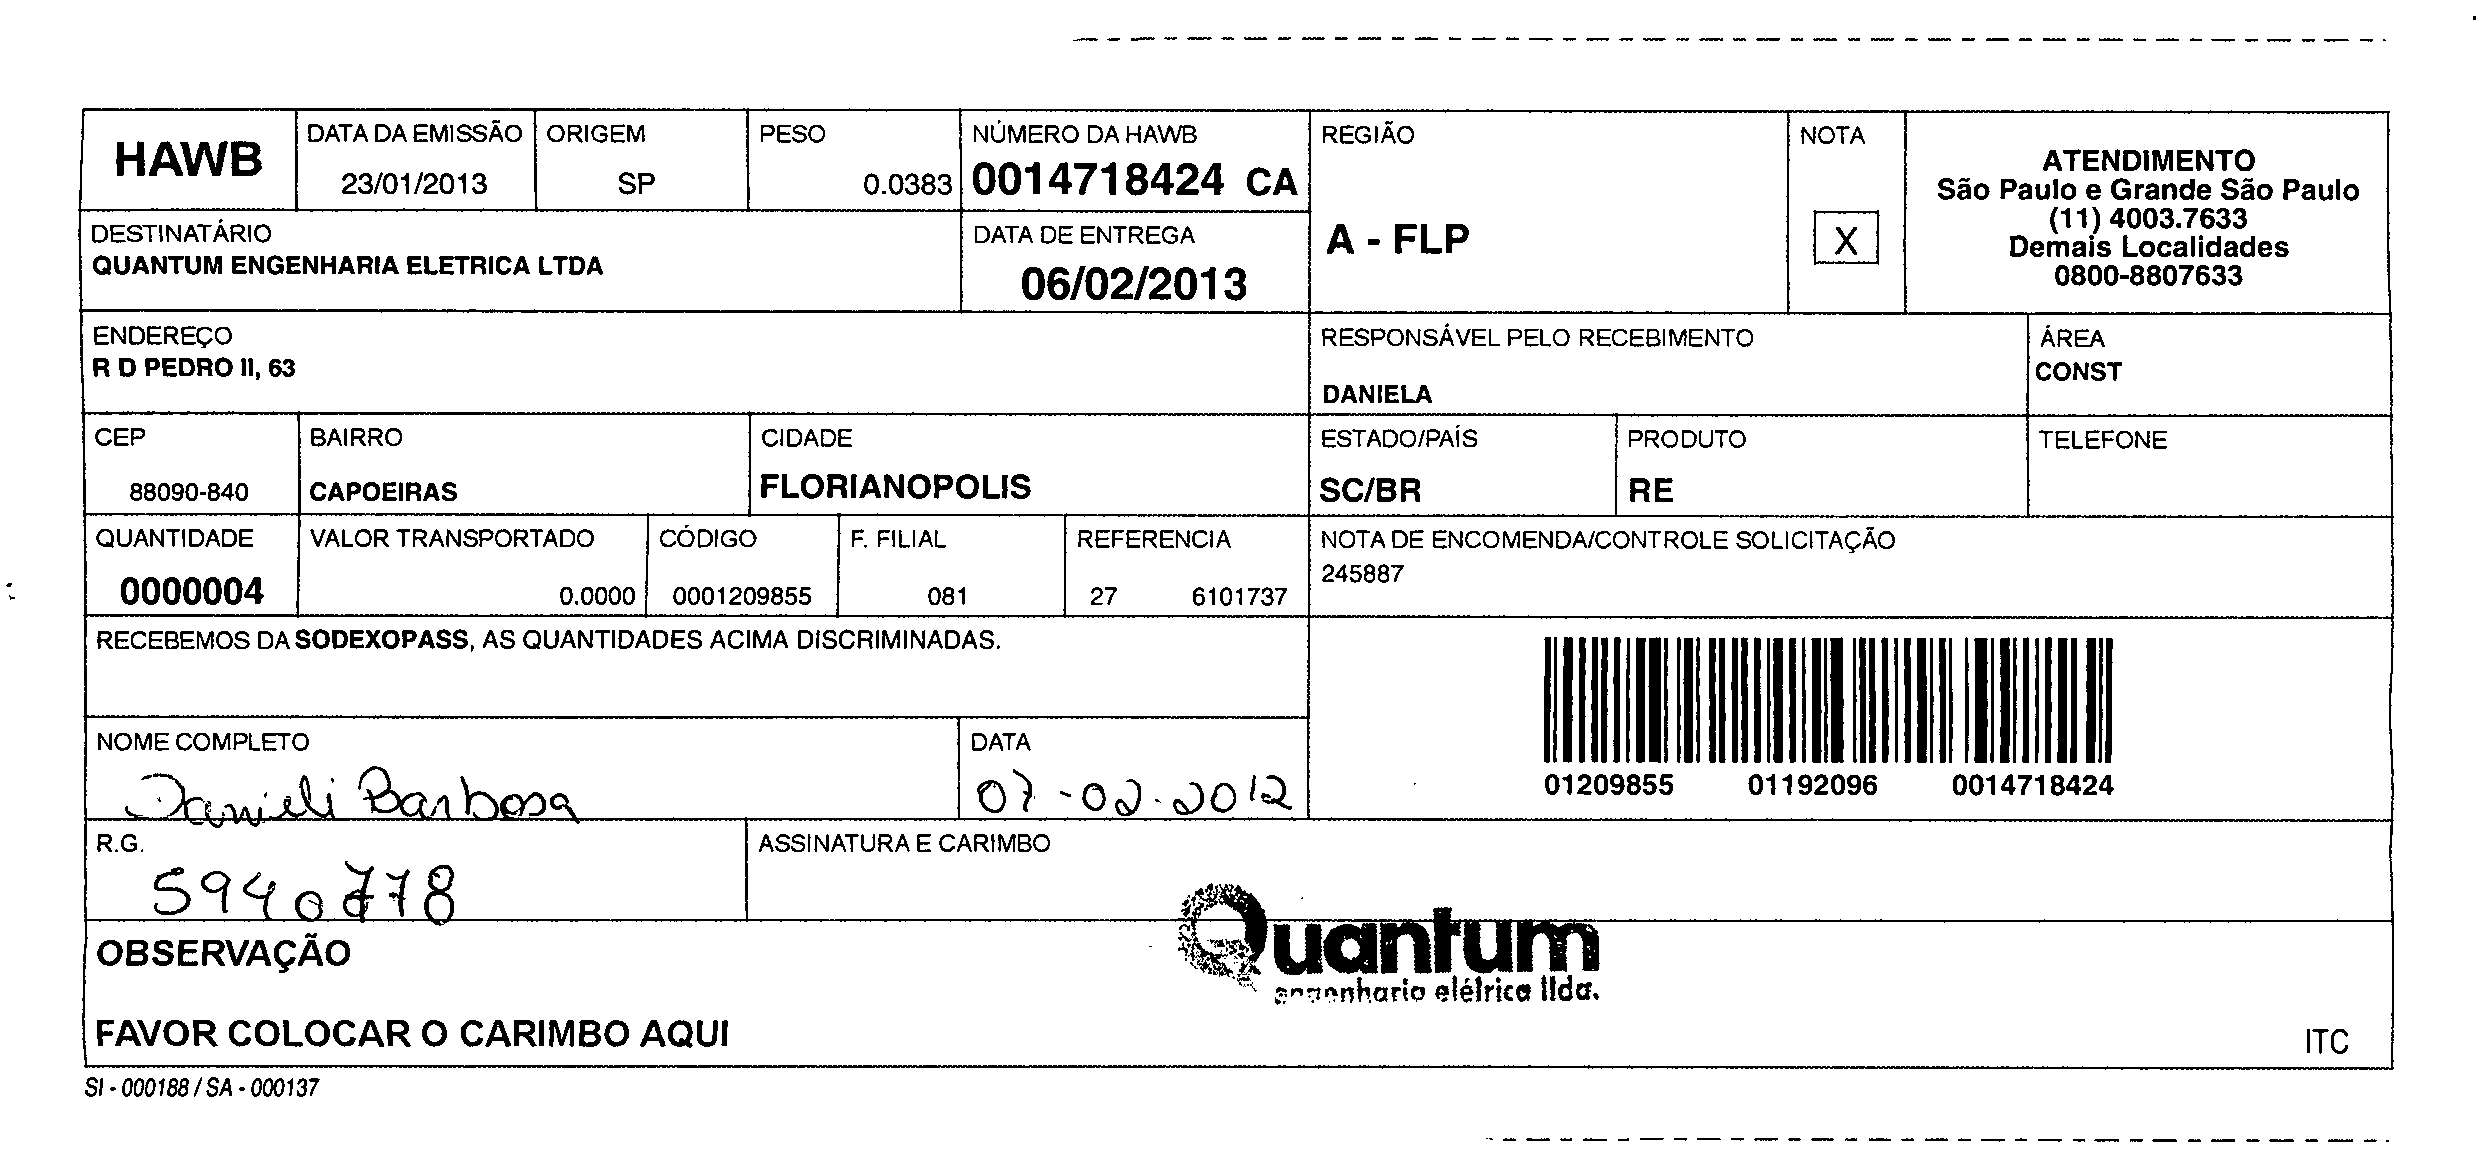 HAWB
DATA DA EMISSÃO
23/01/2013
ORIGEM
SP
PESO
0.0383
NÚMERO DA HAWB
0014718424 CA
REGIÃO
A - FLP
NOTA
X
ATENDIMENTO
São Paulo e Grande São Paulo
(11) 4003.7633
Demais Localidades
0800-8807633
DESTINATÁRIO
QUANTUM ENGENHARIA ELETRICA LTDA
DATA DE ENTREGA
06/02/2013
ENDEREÇO
R D PEDRO II, 63
RESPONSÁVEL PELO RECEBIMENTO
DANIELA
ÁREA
CONST
CEP
88090-840
BAIRRO
CAPOEIRAS
CIDADE
FLORIANOPOLIS
ESTADO/PAÍS
SC/BR
PRODUTO
RE
TELEFONE
QUANTIDADE
0000004
VALOR TRANSPORTADO
0.0000
CÓDIGO
0001209855
F. FILIAL
081
REFERENCIA
27 6101737
NOTA DE ENCOMENDA/CONTROLE SOLICITAÇÃO
245887
RECEBEMOS DA SODEXOPASS, AS QUANTIDADES ACIMA DISCRIMINADAS.
01209855 01192096 0014718424
NOME COMPLETO
Danieli Barbosa
DATA
07-02-2012
R.G.
5940778
ASSINATURA E CARIMBO
Quantum
engenharia elétrica ltda.
OBSERVAÇÃO
FAVOR COLOCAR O CARIMBO AQUI
ITC
SI - 000188 / SA - 000137